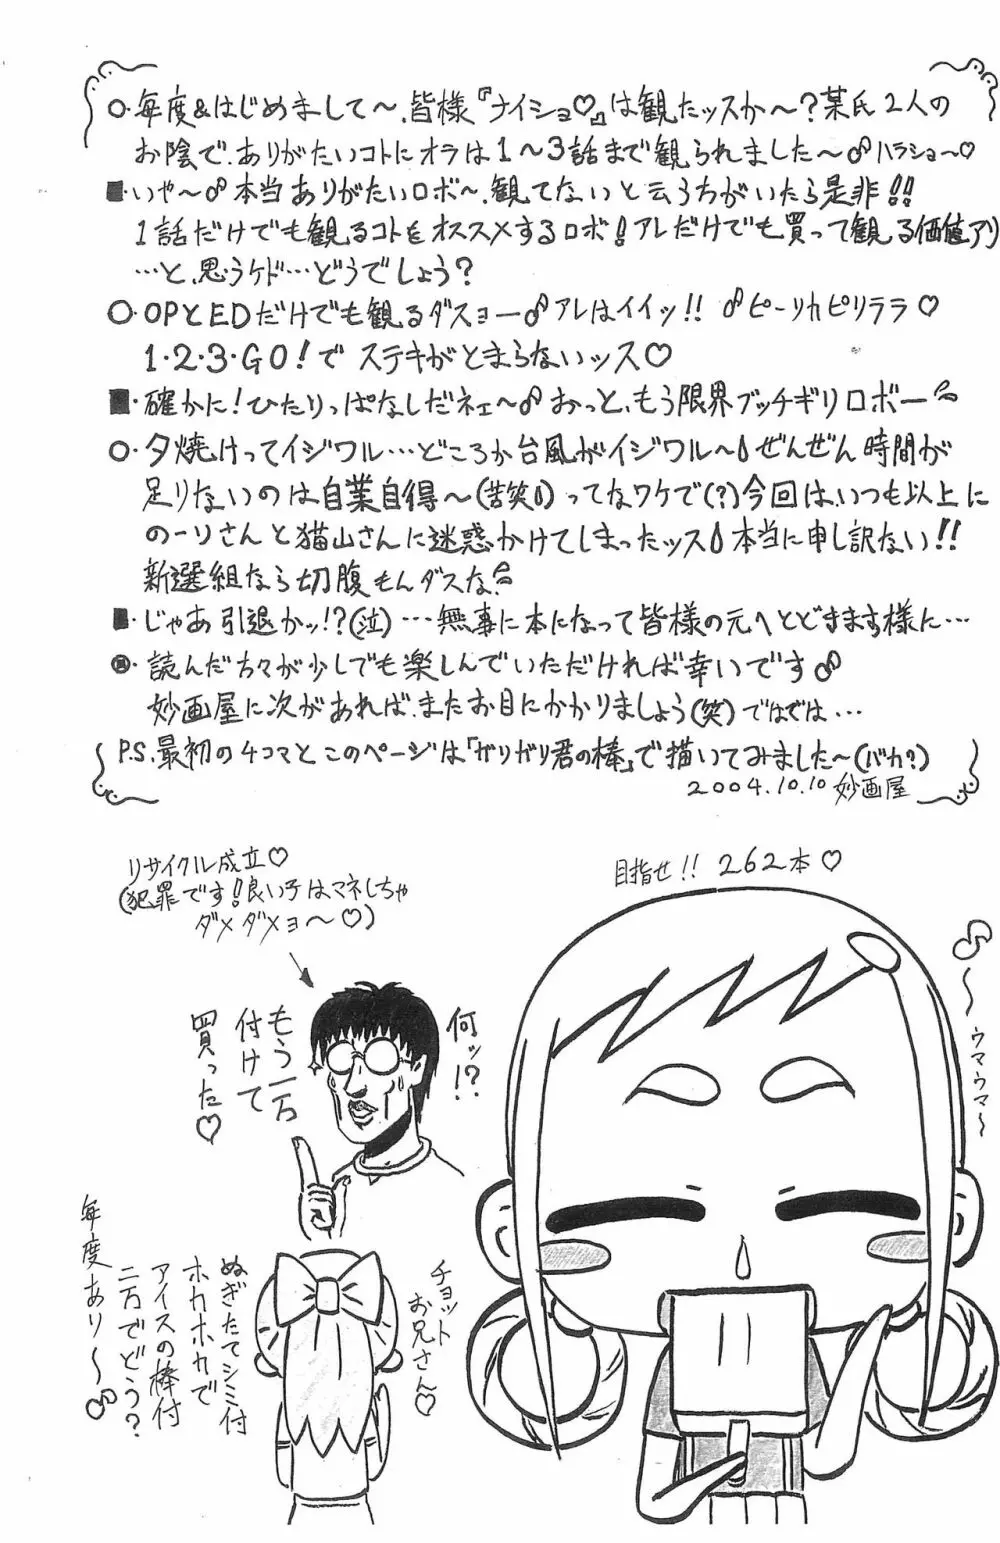 ○・毎度&はじめまして〜、皆様『ナイショ♡』は観たッスか〜?某氏2人の
お陰で、ありがたいコトにオラは1〜3話まで観られました〜♂ハラショ〜♡
■・いや〜♂本当ありがたいロボ〜、観てないと云う方がいたら是非!!
1話だけでも観るコトをオススメするロボ!アレだけでも買って観る価値アリ
…と、思うケド…どうでしょう?
○・OPとEDだけでも観るダスョー♂アレはイイッ!! ♂ピーリカピリララ♡
1・2・3・GO!で ステキがとまらないッス♡
■・確かに!ひたりっぱなしだネェ〜♂おっと、もう限界ブッチギリロボー
○・夕焼けってイジワル…どころか台風がイジワル〜 ぜんぜん時間が
足りないのは自業自得〜(苦笑)ってなワケで(?)今回は、いつも以上に
のーソさんと猫山さんに迷惑かけてしまったッス 本当に申し訳ない!!
新選組なら切腹もんダスな
■・じゃあ引退かッ!?(泣)…無事に本になって皆様の元へとどきます様に…
◉・読んだ方々が少しでも楽しんでいただければ幸いです♂
妙画屋に次があれば、またお目にかかりましょう(笑)ではでは…
P.S.最初の4コマとこのページは「ガリガリ君の棒」で描いてみました〜(バカ?)
2004.10.10 妙画屋
目指せ!!262本♡
〜ウマウマ〜